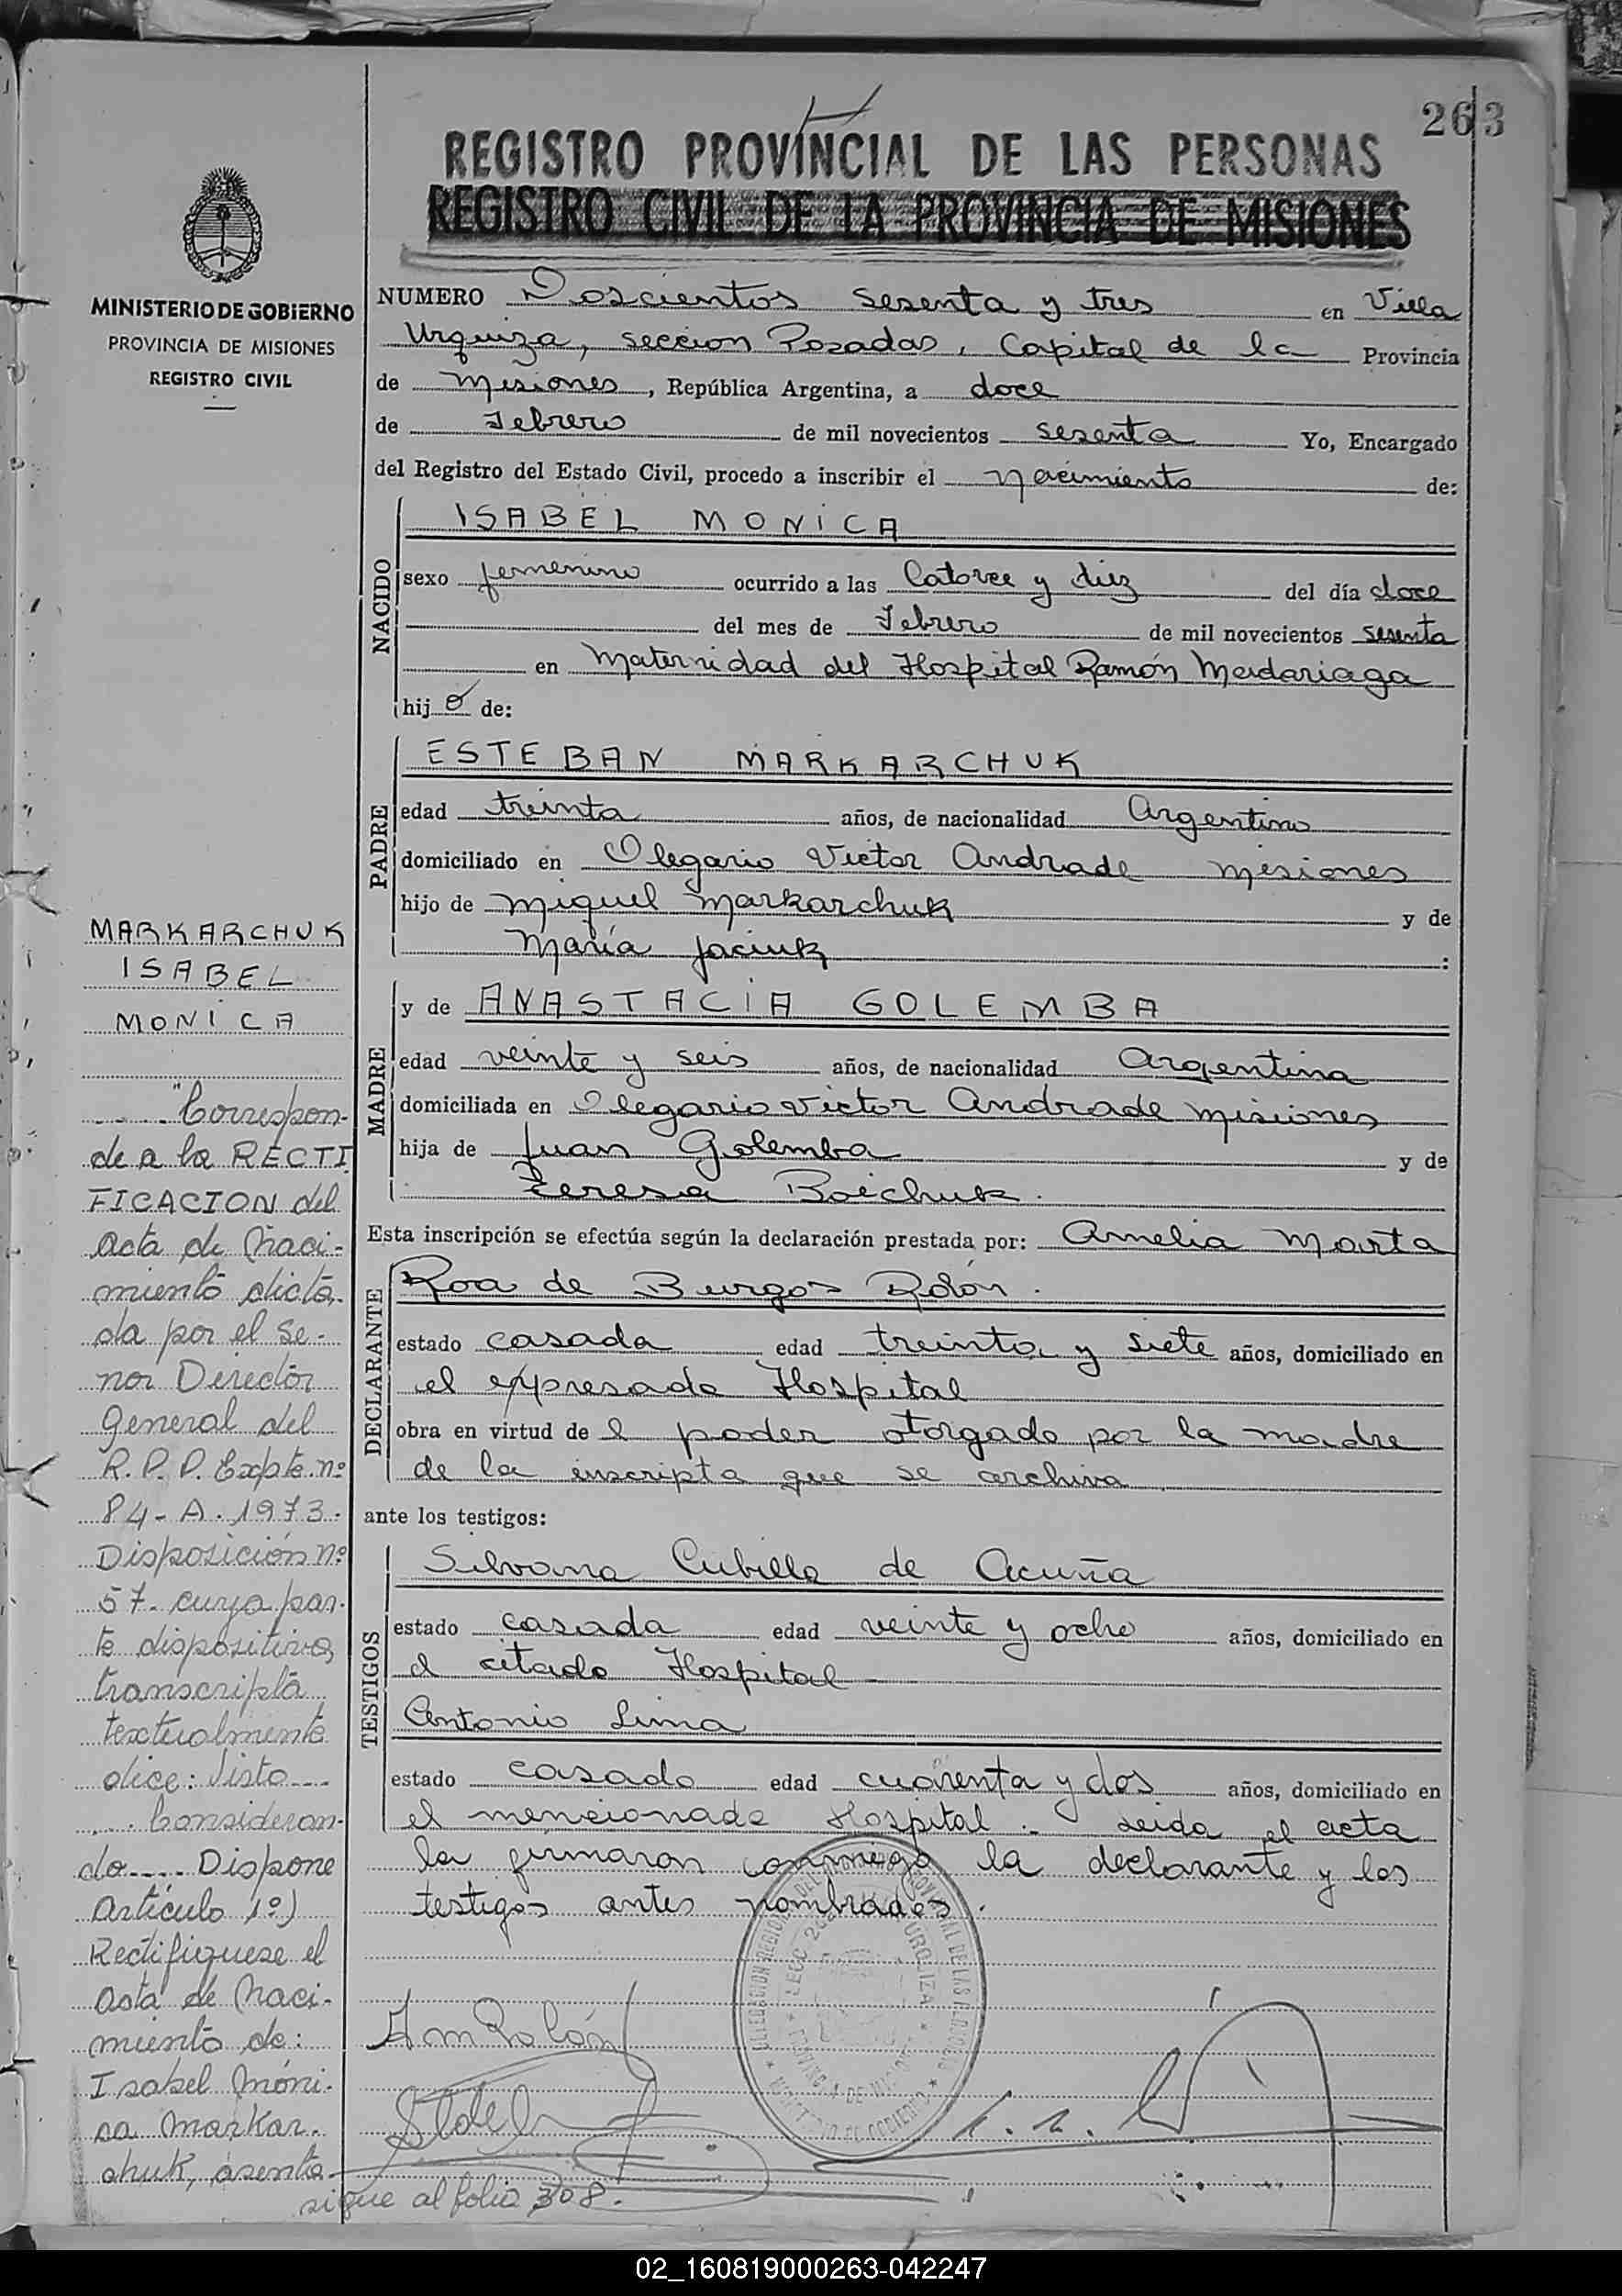 263
REGISTRO PROVINCIAL DE LAS PERSONAS
REGISTRO CIVIL DE LA PROVINCIA DE MISIONES
MINISTERIO DE GOBIERNO
PROVINCIA DE MISIONES
REGISTRO CIVIL
NUMERO Doscientos sesenta y tres en Villa
Urquiza, seccion Posadas, Capital de la Provincia
de Misiones, República Argentina, a doce
de Febrero de mil novecientos sesenta Yo, Encargado
del Registro del Estado Civil, procedo a inscribir el nacimiento de:
NACIDO
ISABEL MONICA
sexo femenino ocurrido a las Catorce y diez del día doce
del mes de Febrero de mil novecientos sesenta
en Maternidad del Hospital Ramón Madariaga
hij a de:
PADRE
ESTEBAN MARKARCHUK
edad treinta años, de nacionalidad Argentino
domiciliado en Olegario Victor Andrade Misiones
hijo de Miguel Markarchuk y de
María Jaciuk :
MADRE
y de ANASTACIA GOLEMBA
edad veinte y seis años, de nacionalidad Argentina
domiciliada en Olegario Victor Andrade Misiones
hija de Juan Golemba y de
Teresa Boichuk.
Esta inscripción se efectúa según la declaración prestada por: Amelia Marta
DECLARANTE
Roa de Burgos Rolón.
estado casada edad treinta y siete años, domiciliado en
el expresado Hospital
obra en virtud de l poder otorgado por la madre
de la inscripta que se archiva.
ante los testigos:
TESTIGOS
Silvana Cubilla de Acuña
estado casada edad veinte y ocho años, domiciliado en
el citado Hospital
Antonio Lima
estado casado edad cuarenta y dos años, domiciliado en
el mencionado Hospital.- Leida el acta
la firmaron conmigo la declarante y los
testigos antes nombrados.
AmRolón
MARKARCHUK
ISABEL
MONICA
"Correspon-
de a la RECTI
FICACION del
Acta de Naci-
miento dicta-
da por el Se-
ñor Director
General del
R.P.P. Expte. nº
84-A.1973.-
Disposición Nº
57- cuya par-
te dispositiva,
transcripta
textualmente
dice: Visto....
.... Consideran-
do.... Dispone
Artículo 1º)
Rectifiquese el
acta de Naci-
miento de:
Isabel Móni-
ca Markar-
chuk, asenta-
sigue al folio 308.-
02_160819000263-042247